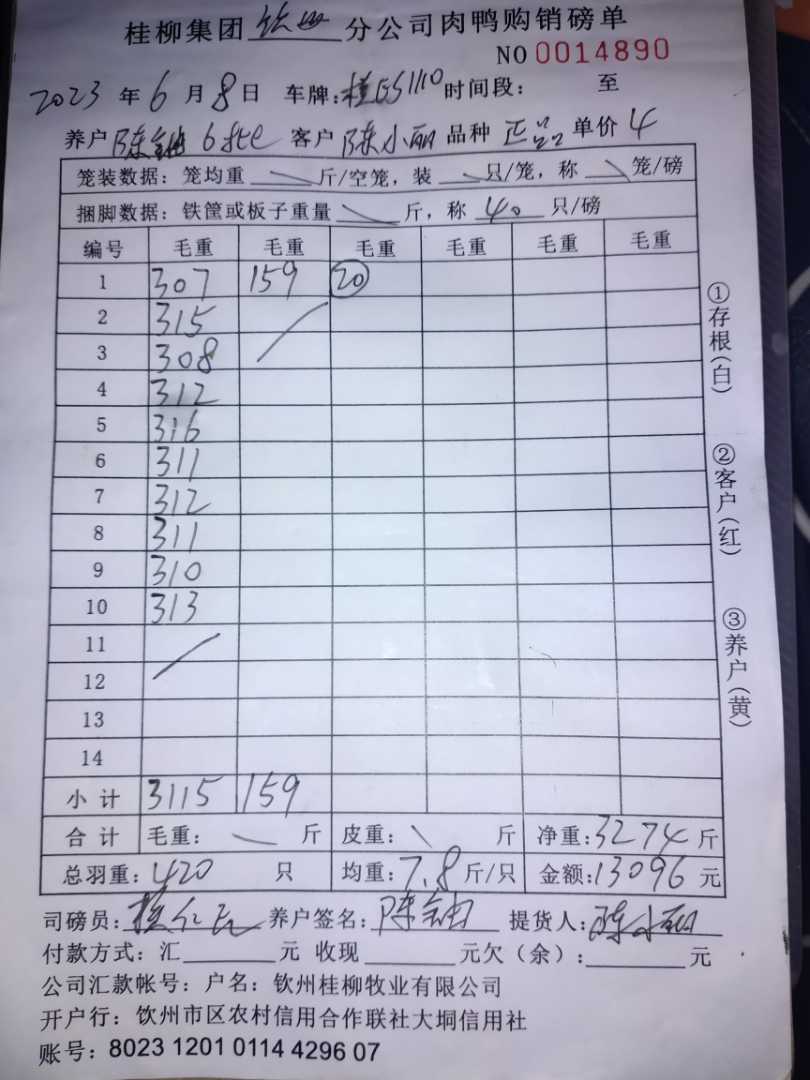 桂柳集团 钦州 分公司肉鸭购销磅单
NO 0014890
2023 年 6 月 8 日 车牌: 桂ES1110 时间段: 至
养户 陈 客户 陈小丽 品种 正品 单价 4
笼装数据: 笼均重 斤/空笼, 装 只/笼, 称 笼/磅
捆脚数据: 铁筐或板子重量 斤, 称 40 只/磅
编号 毛重 毛重 毛重 毛重 毛重 毛重
1 307 159 20
2 315
3 308
4 312
5 316
6 311
7 312
8 311
9 310
10 313
11
12
13
14
小计 3115 159
合计 毛重: 斤 皮重: 斤 净重: 3274 斤
总羽重: 420 只 均重: 7.8 斤/只 金额: 13096 元
司磅员: 养户签名: 陈 提货人: 陈小丽
付款方式: 汇 元 收现 元欠(余): 元
公司汇款帐号: 户名: 钦州桂柳牧业有限公司
开户行: 钦州市区农村信用合作联社大垌信用社
账号: 8023 1201 0114 4296 07
①存根(白)
②客户(红)
③养户(黄)